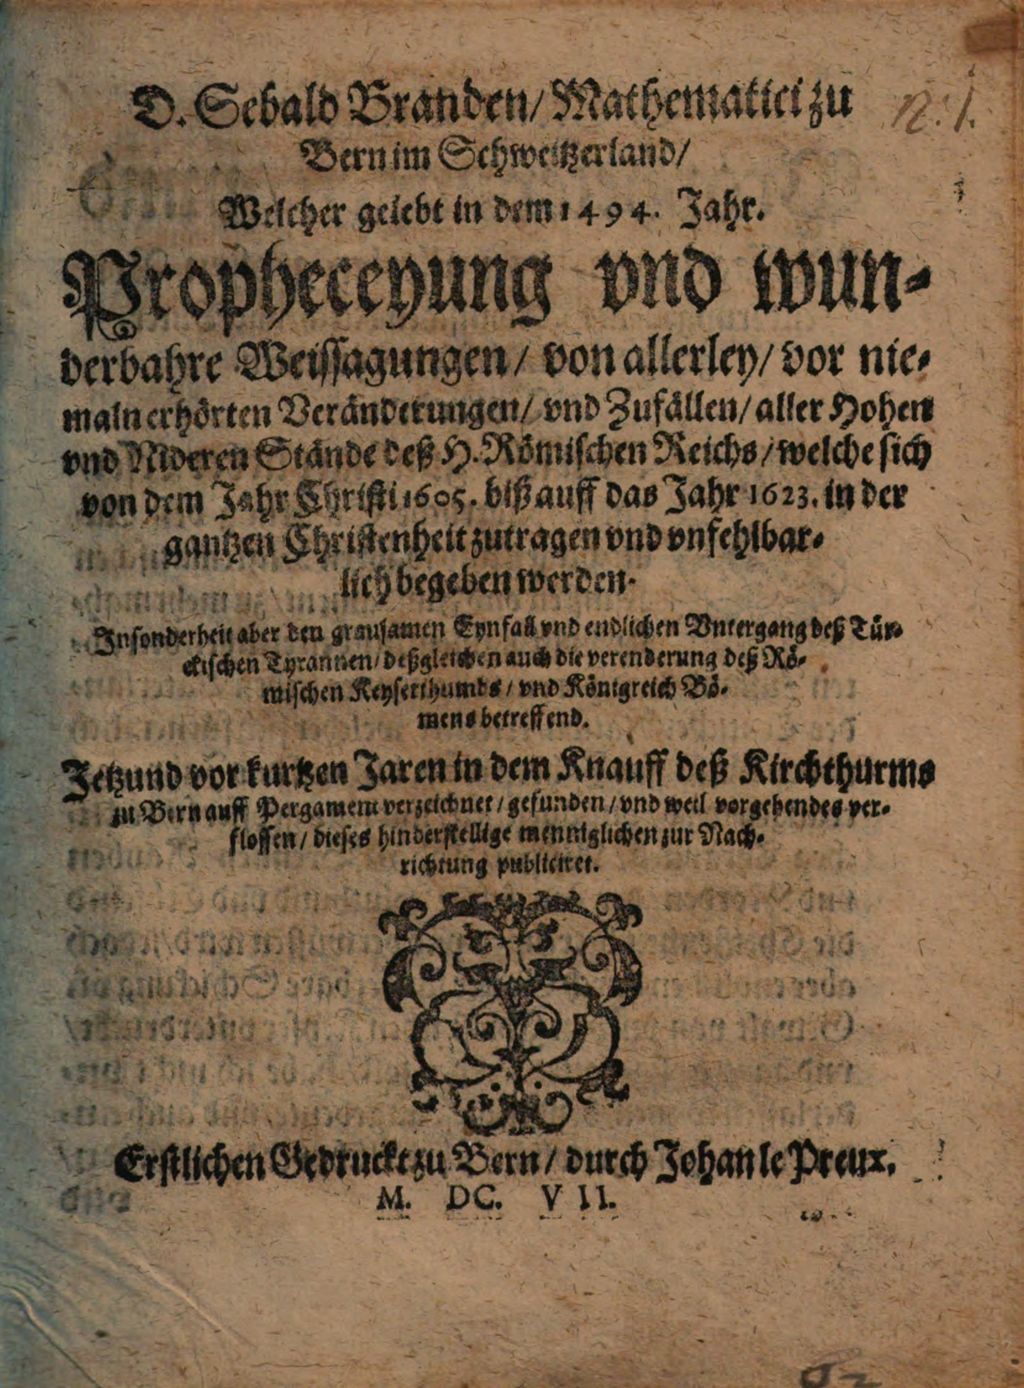 D. Sebald Branden/ Mathematici zu
Bern im Schweitzerland/
Welcher gelebt in dem 1494. Jahr.
Propheceyung vnd wun-
derbahre Weissagungen/ von allerley/ vor nie-
maln erhörten Veränderungen/ vnd Zufällen/ aller Hohen
vnd Nideren Stände deß H. Römischen Reichs/ welche sich
von dem Jahr Christi 1605. biß auff das Jahr 1623. in der
gantzen Christenheit zutragen vnd vnfehlbar-
lich begeben werden.
Insonderheit aber den grausamen Eynfall vnd endlichen Vntergang deß Tür-
ckischen Tyrannen/ deßgleichen auch die verenderung deß Rö-
mischen Keyserthumbs/ vnd Königreich Bö-
mens betreffend.
Jetzund vor kurtzen Jaren in dem Knauff deß Kirchthurms
zu Bern auff Pergamem verzeichnet/ gefunden/ vnd weil vorgehendes ver-
flossen/ dieses hinderstellige menniglichen zur Nach-
richtung publiciret.
Erstlichen Gedruckt zu Bern/ durch Johan le Preux.
M. DC. VII.